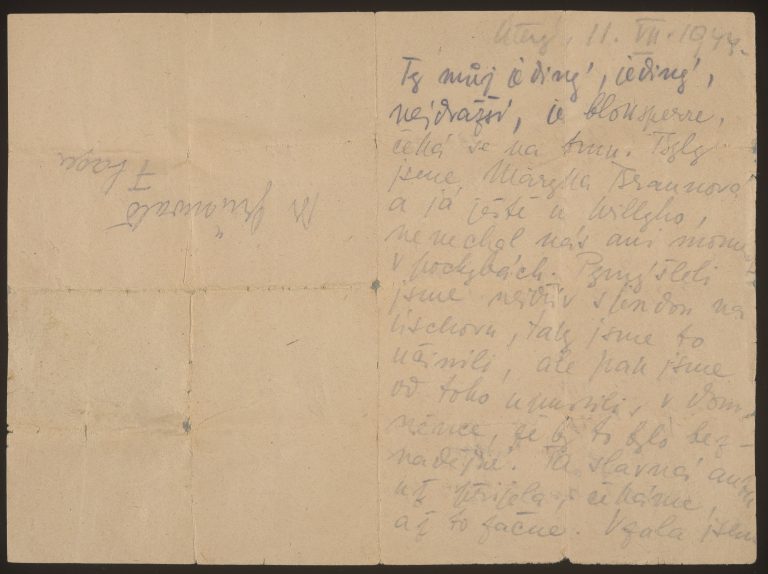 Úterý, 11. VII. 1944.
Ty můj jediný, jediný,
nejdražší, je bloksperre,
čeká se na tmu. Byly
jsme, Margita Braunová
a já ještě u Willyho,
nenechal nás ani
v pochybách. Pomýšleli
jsme nejdřív na
tak jsme to
učinili, ale pak jsme
od toho upustili, v dom-
něnce, že by to bylo bez-
nadějné. Ta slavná
už přijela, čekáme,
až to začne. Vzala jsem
Dr Grünwald
F Lager